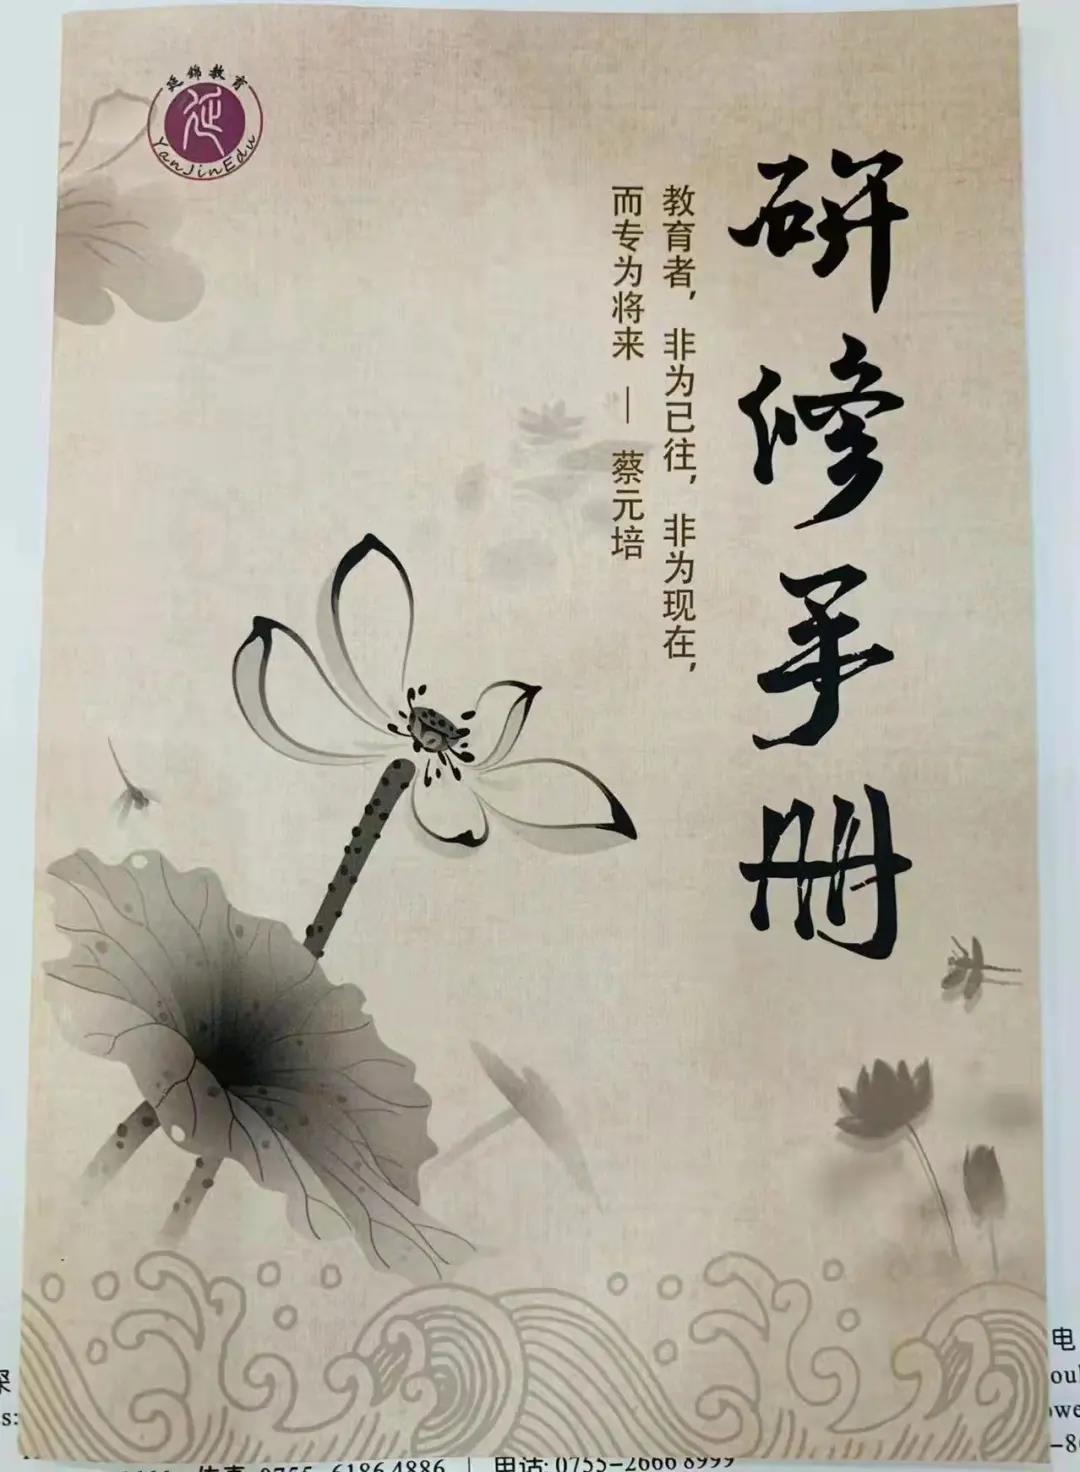 延锦教育
延
YanJinEdu
研修手册
教育者，非为已往，非为现在，
而专为将来 — 蔡元培
电
深
传真: 0755-6186 4886 | 电话: 0755-2666 8999